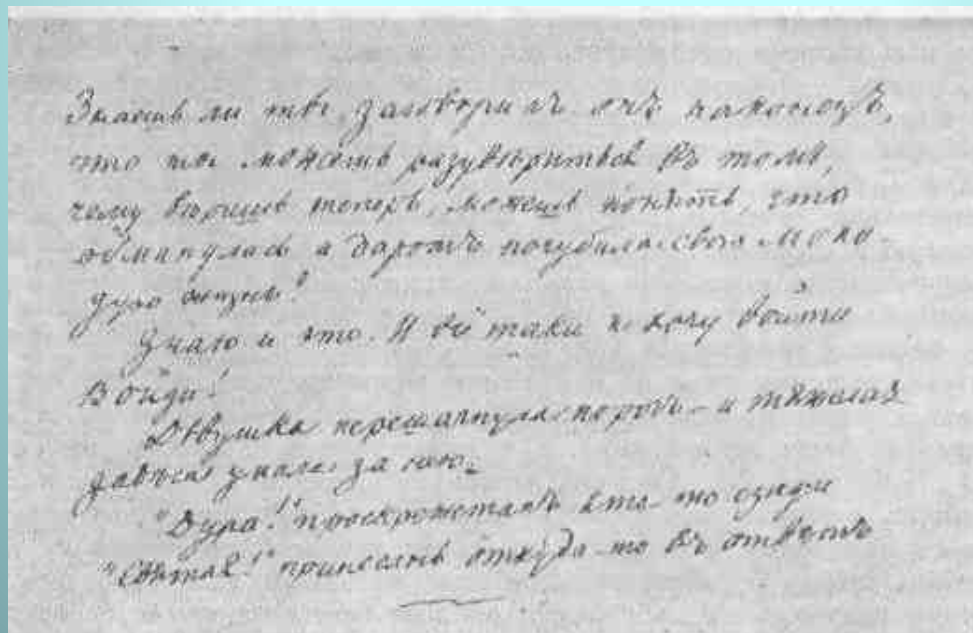 Знаешь ли ты, заговорилъ онъ наконецъ,
что ты можешь разувѣриться въ томъ,
чему вѣришь теперь, можешь понять, что
обманулась и даромъ погубила свою моло-
дую жизнь?
Знаю и это. И всё таки я хочу войти
Войди!
Дѣвушка перешагнула порогъ – и тяжелая
завѣса упала за нею.
"Дура!" проскрежеталъ кто-то сзади
"Святая!" принеслось откуда-то въ отвѣтъ